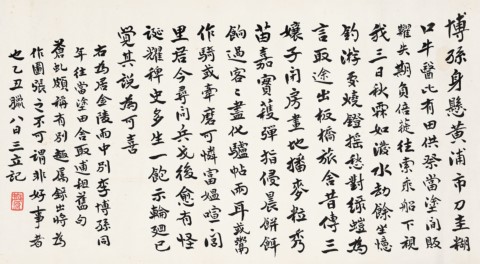 博孫身懸黃浦市刀圭糊
口牛醫比有田供祭當塗間販
糶失期負倍蓰往索乘船下視
我三日秋霖如潑水劫餘生憶
釣游處燒鐙搖愁對綠螘為
言取途出板橋旅舍昔傳三
孃子閉房畫地播麥粒秀
苗嘉實穫彈指侵晨餅餌
餉過客〻盡化驢帖兩耳或鬻
作騎或牽磨可憐富媼喧一閧
里居今尋問兵戈後愈有怪
誕耀稗史多生一飽示輪迴已
覺其說為可喜
右為居金陵雨中別李博孫同
年往當塗田舍取逋租舊句
蒼虬頗稱有別趣屬錄出將為
作圖張之不可謂非好事者
也乙丑臘八日三立記